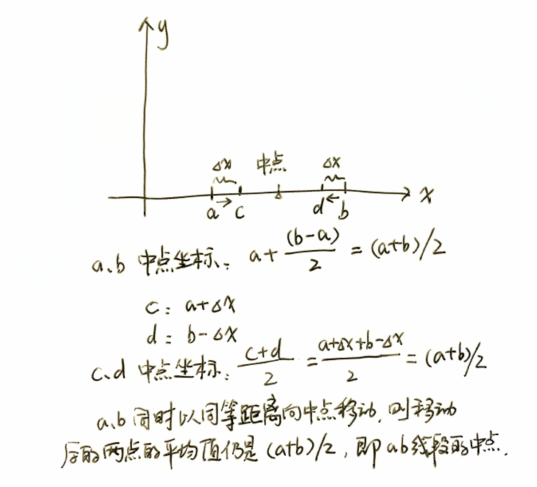 y
Δx 中点 Δx
a c d b x
a、b 中点坐标: a + (b-a)/2 = (a+b)/2
c: a+Δx
d: b-Δx
c、d 中点坐标: c+d/2 = a+Δx+b-Δx/2 = (a+b)/2
a、b同时以同等距离向中点移动,则移动
后的两点的平均值仍是 (a+b)/2, 即 ab线段的中点.